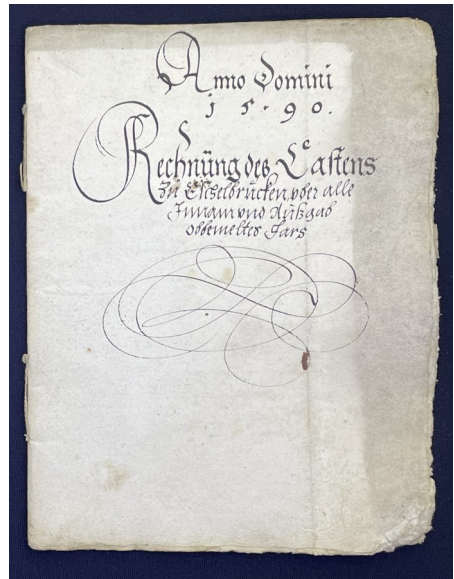 Anno Domini
1 5 · 9 0 .
Rechnüng des Castens
Zu Esselbrücken, vber alle
Innam vnd Aüßgab
obbemeltes Jars